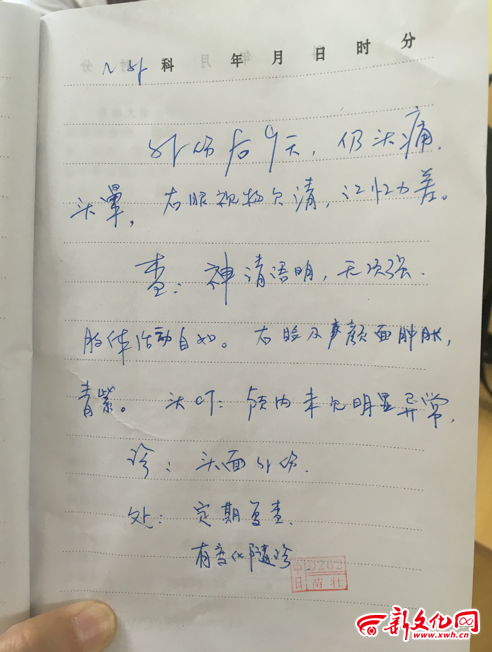 外科 年 月 日 时 分
外伤后9天，仍头痛，
头晕，右眼视物欠清，记忆力差。
查：神清语明，无项强.
肢体活动自如。右睑及颜面肿胀，
青紫。头CT：颅内未见明显异常，
诊：头面外伤.
处：定期复查.
有变化随诊
新文化网
www.xwh.cn